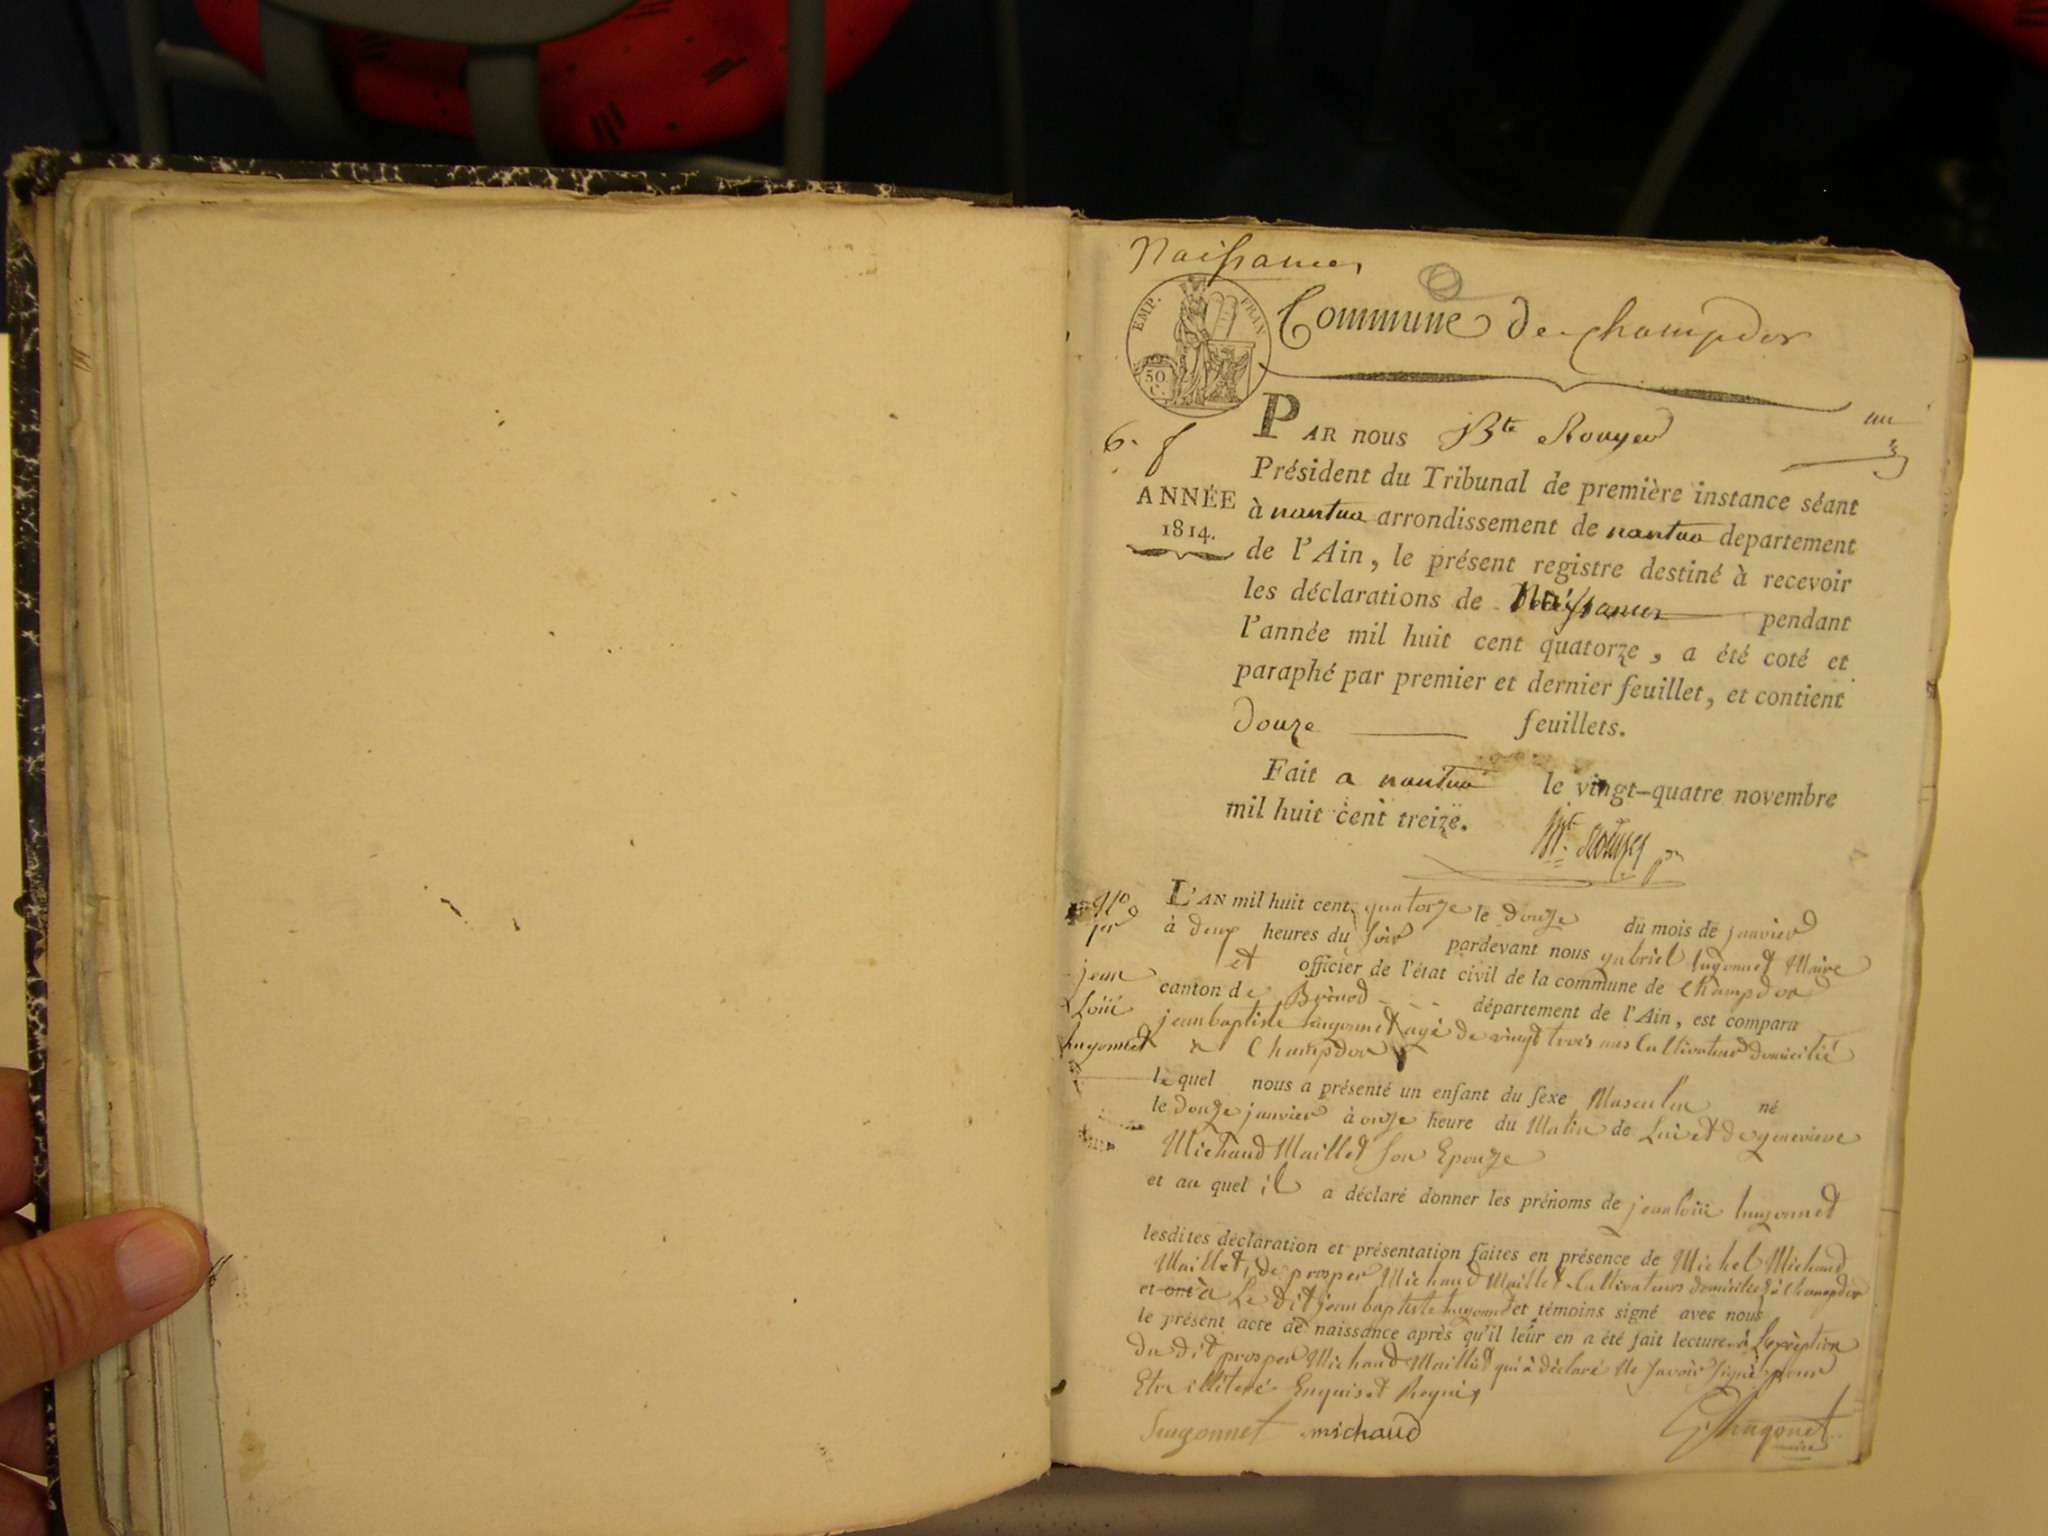 Naissances
Commune de Champdor
EMP. FRAN
50
C.
un
6. f
PAR nous Bte Rouyer
Président du Tribunal de première instance séant
ANNÉE
1814.
à nantua arrondissement de nantua departement
de l'Ain, le présent registre destiné à recevoir
les déclarations de Naissances pendant
l'année mil huit cent quatorze, a été coté et
paraphé par premier et dernier feuillet, et contient
douze feuillets.
Fait a nantua le vingt-quatre novembre
mil huit cent treize.
Bte Rouyer
N° 1er
jean
Loüi
hugonnet
L'AN mil huit cent quatorze le douze du mois de janvier
à deux heures du soir pardevant nous gabriel hugonnet Maire
et officier de l'état civil de la commune de Champdor
canton de Brénod département de l'Ain, est comparu
jean baptiste hugonnet agé de vingt trois ans Cultivateur domicilié
a Champdor
le quel nous a présenté un enfant du sexe Masculin né
le douze janvier à onze heure du Matin de Lui et de genevieve
Michaud Maillet son Epouze
et au quel il a déclaré donner les prénoms de jean loüi hugonnet
lesdites déclaration et présentation faites en présence de Michel Michaud
Maillet, de prosper Michaud Maillet Cultivateurs domiciliés à Champdor
et ont à Le dit jean baptiste hugonnet et témoins signé avec nous
le présent acte de naissance après qu'il leur en a été fait lecture à L'exception
du dit prosper Michaud Maillet qui à déclaré Ne savoir signé pour
Etre illiteré Enquis et Requis
hugonnet michaud G. hugonnet
maire